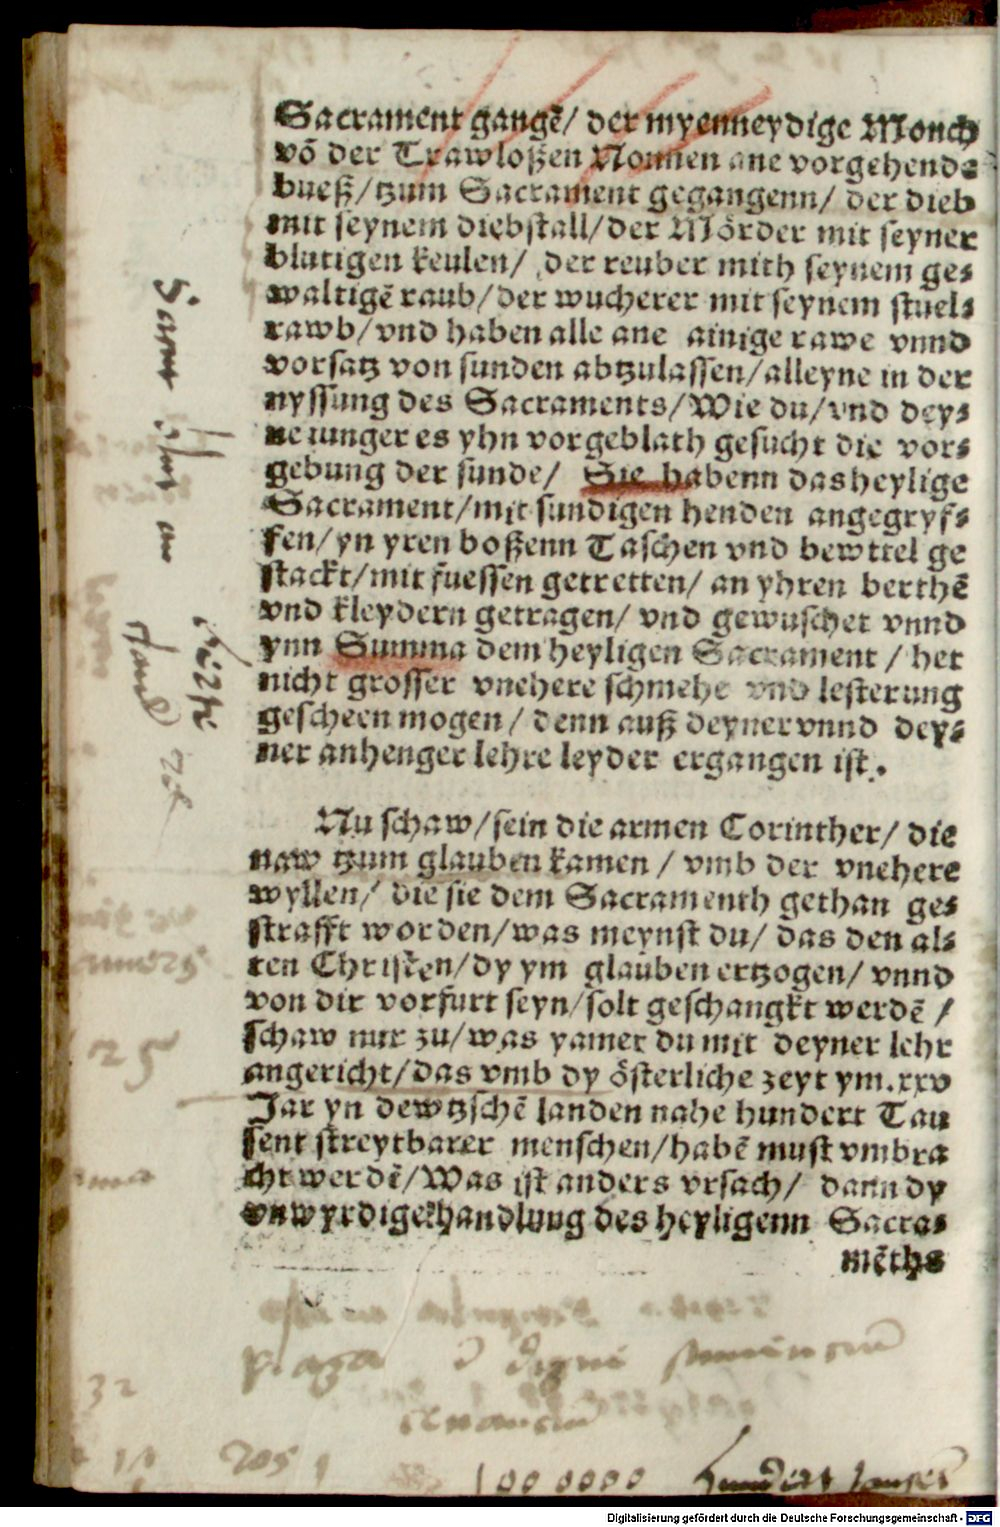 Sacrament gangẽ/ der myenneydige Monch
võ der Trawloßen Nonnen ane vorgehende
bueß/tzum Sacrament gegangenn/ der dieb
mit seynem diebstall/der Mörder mit seyner
blutigen keulen/ der reuber mith seynem ge⸗
waltigẽ raub/der wucherer mit seynem stuel⸗
rawb/vnd haben alle ane ainige rawe vnnd
vorsatz von sunden abtzulassen/alleyne in der
nyssung des Sacraments/Wie du/vnd dey⸗
ne iunger es yhn vorgeblath gesucht die vor⸗
gebung der sunde/ Sie habenn das heylige
Sacrament/mit sundigen henden angegryf⸗
fen/yn yren boßenn Taschen vnd bewttel ge
stackt/mit fuessen getretten/an yhren berthẽ
vnd kleydern getragen/ vnd gewuschet vnnd
ynn Summa dem heyligen Sacrament / het
nicht grosser vnehere schmehe vnd lesterung
gescheen mogen/ denn auß deyner vnnd dey⸗
ner anhenger lehre leyder ergangen ist.
Nu schaw/sein die armen Corinther/ die
naw tzum glauben kamen / vmb der vnehere
wyllen/ die sie dem Sacramenth gethan ge⸗
strafft worden/was meynst du/ das den al⸗
ten Christen/dy ym glauben ertzogen/ vnnd
von dir vorfurt seyn/solt geschangkt werdẽ /
schaw nur zu/was yamer du mit deyner lehr
angericht/das vmb dy österliche zeyt ym.xxv
Jar yn dewtzschẽ landen nahe hundert Tau
sent streytbarer menschen/habẽ must vmbra
cht werdẽ/Was ist anders vrsach/ dann dy
vnwyrdige handlung des heyligenn Sacra⸗
mẽths
25
32
205
100 0000 hundert tausent
Digitalisierung gefördert durch die Deutsche Forschungsgemeinschaft - DFG